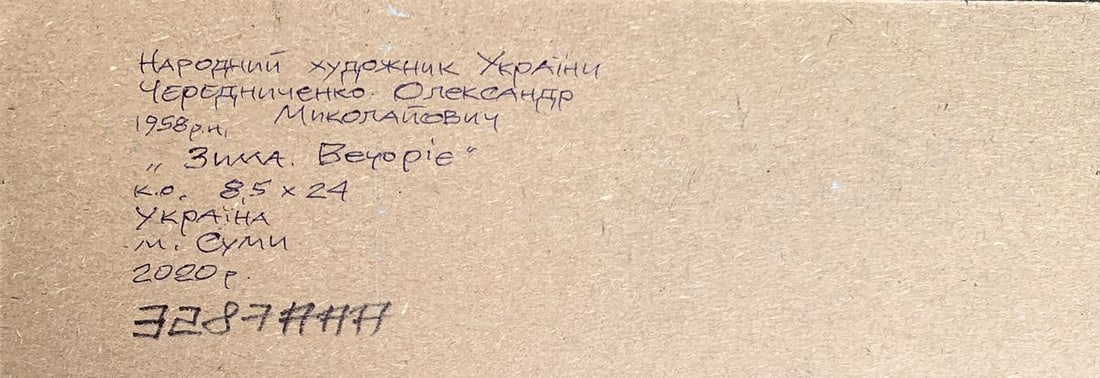 Народний художник України
Чередниченко Олександр
1958 р.н. Миколайович
„Зима. Вечоріє“
к.о. 8,5 x 24
Україна
м. Суми
2020 р.